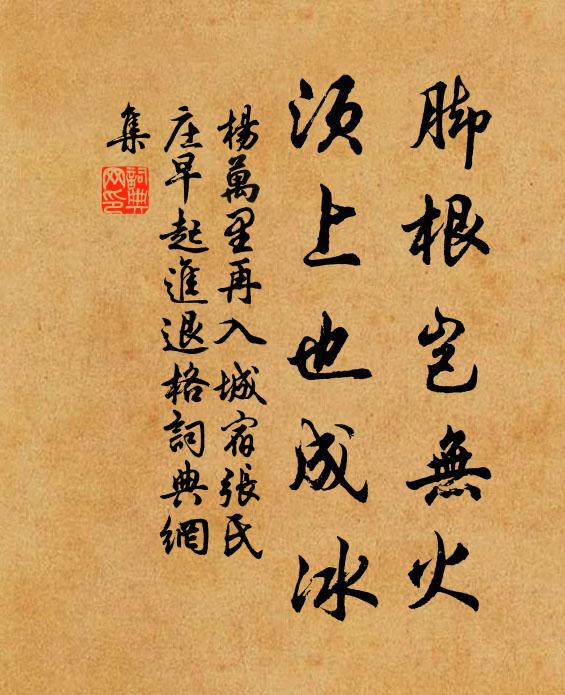 脚根岂無火
須上也成冰
楊萬里再入城宿張氏
庄早起進退格詞典網
集
詞典
网印